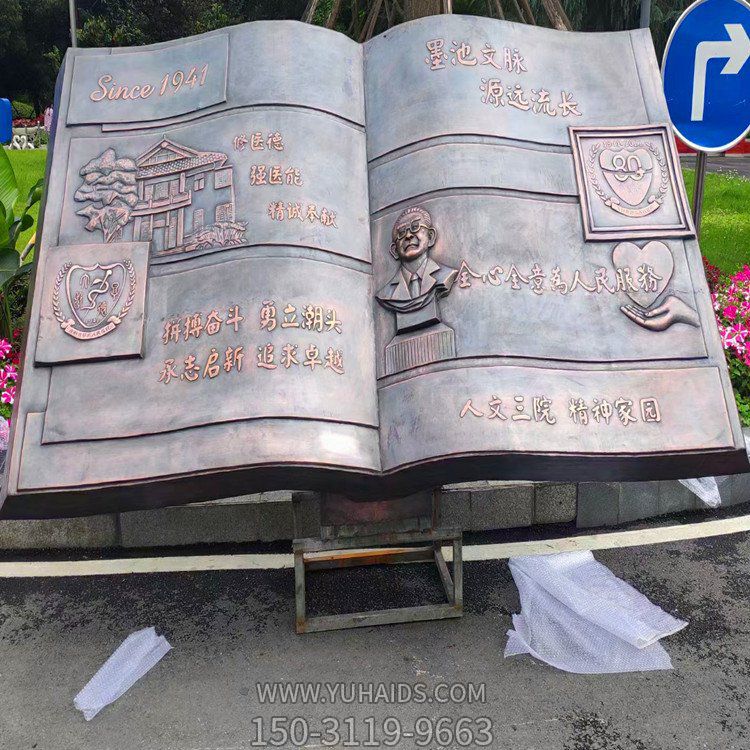 Since 1941
修医德
强医能
精诚奉献
拼搏奋斗 勇立潮头
承志启新 追求卓越
墨池文脉
源远流长
全心全意为人民服務
人文三院 精神家园
WWW.YUHAIDS.COM
150-3119-9663